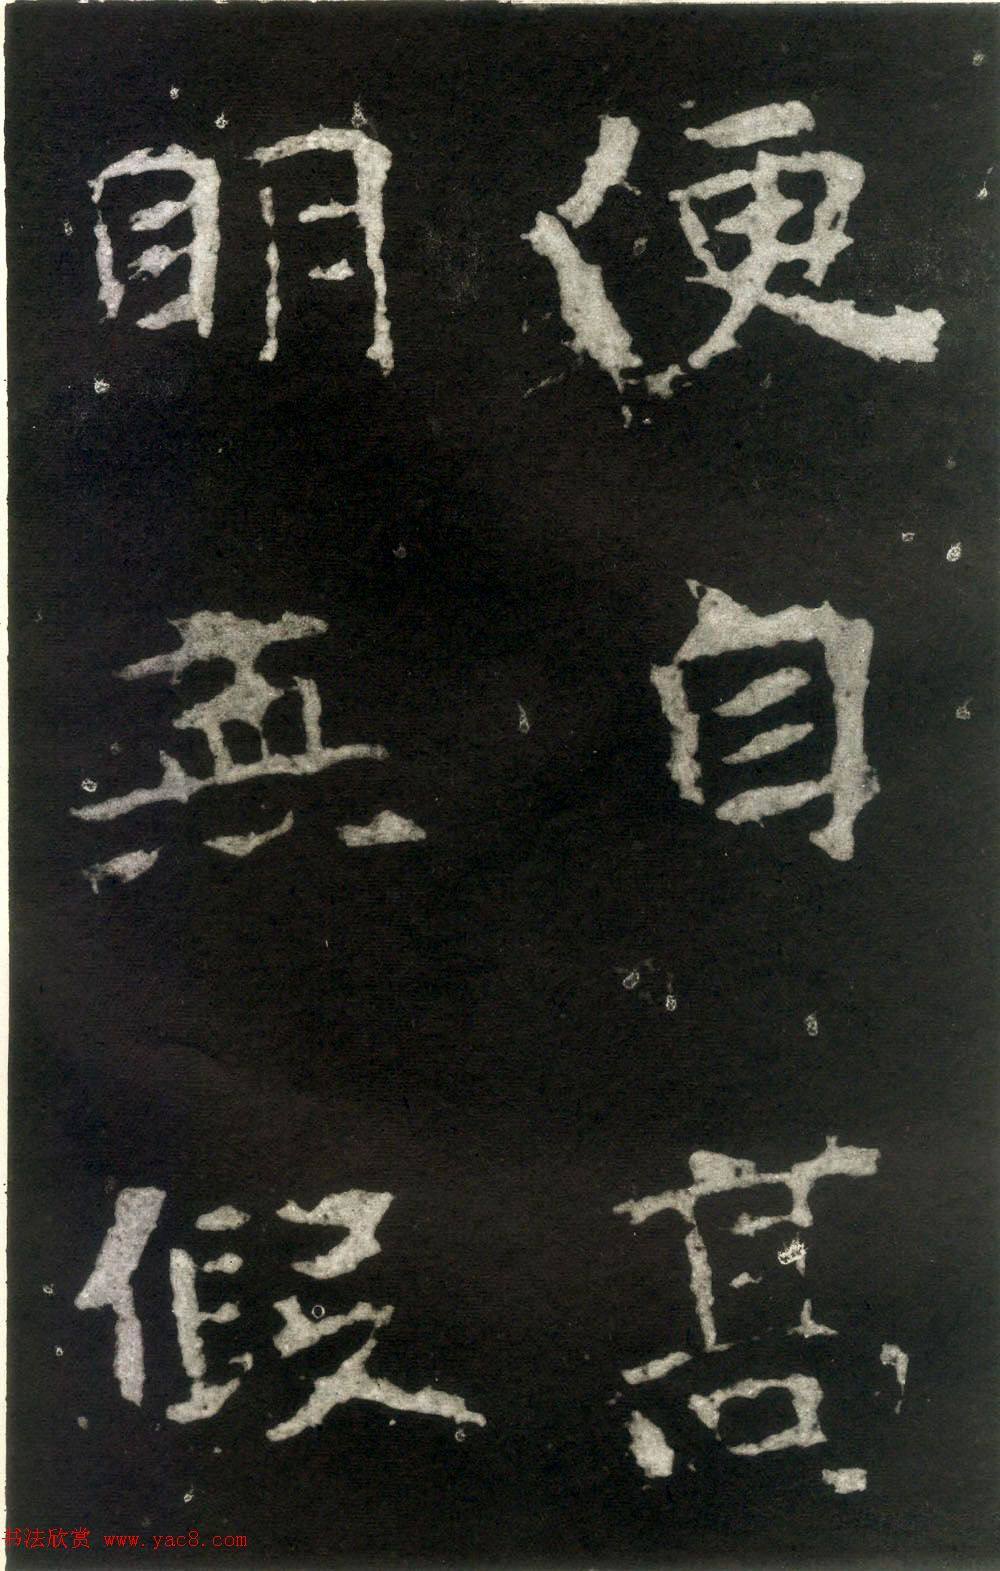 便自高
明無假
书法欣赏 www.yac8.com